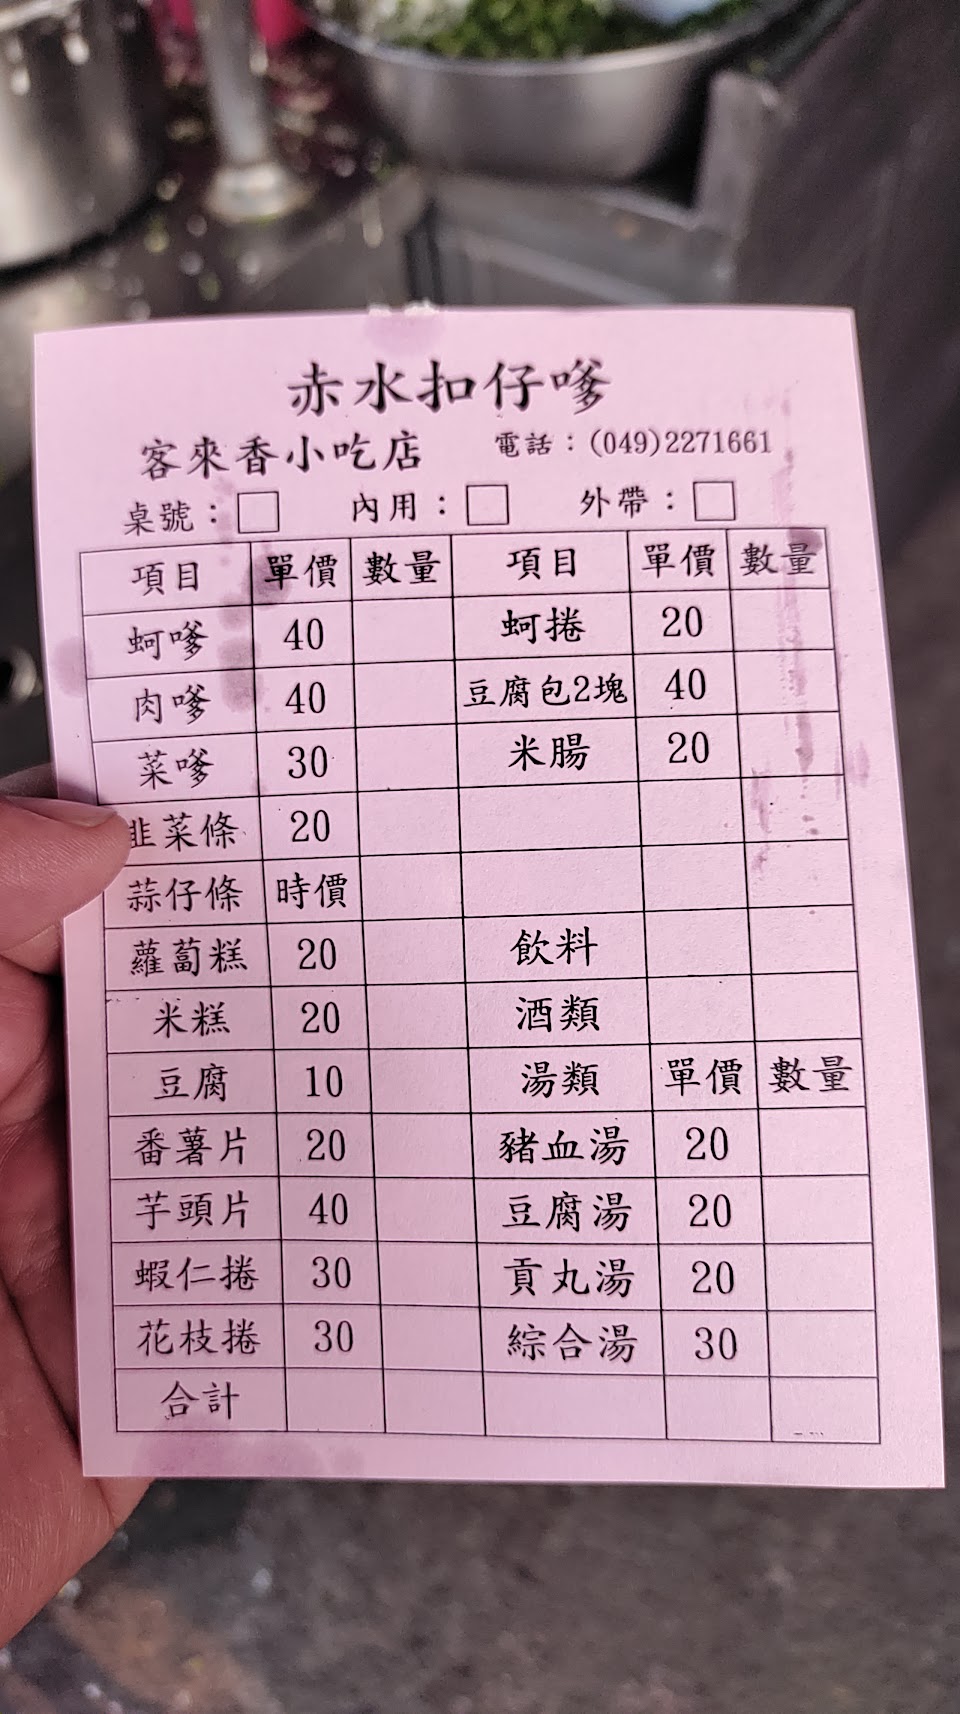 赤水扣仔嗲
客來香小吃店 電話：(049)2271661
桌號： 內用： 外帶：
項目 單價 數量 項目 單價 數量
蚵嗲 40 蚵捲 20
肉嗲 40 豆腐包2塊 40
菜嗲 30 米腸 20
韭菜條 20
蒜仔條 時價
蘿蔔糕 20 飲料
米糕 20 酒類
豆腐 10 湯類 單價 數量
番薯片 20 豬血湯 20
芋頭片 40 豆腐湯 20
蝦仁捲 30 貢丸湯 20
花枝捲 30 綜合湯 30
合計